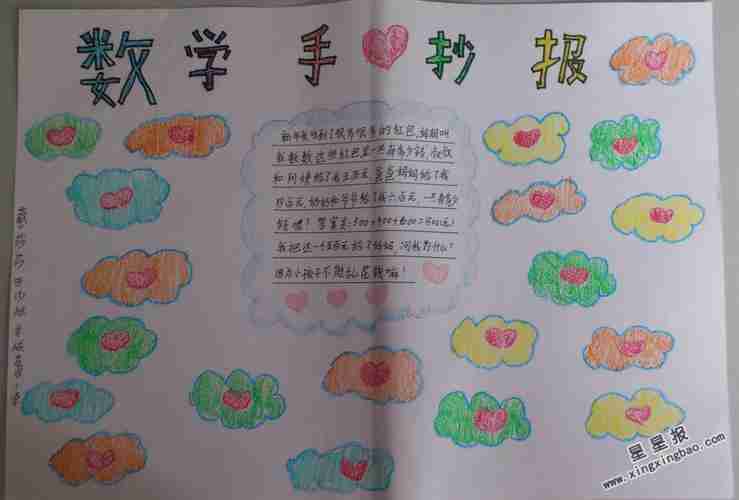 数学手抄报
新年我收到了很多很多的红包,妈妈叫
我数数这些红包里一共有多少钱,叔叔
和阿姨给了我五百元,爸爸妈妈给了我
四百元,奶奶和爷爷给了我六百元,一共有多少
钱呢?答案是:500+400+600=1500元!
我把这一千五百元给了妈妈,问我为什么?
因为小孩子不能乱花钱嘛!
星星报
www.xingxingbao.com